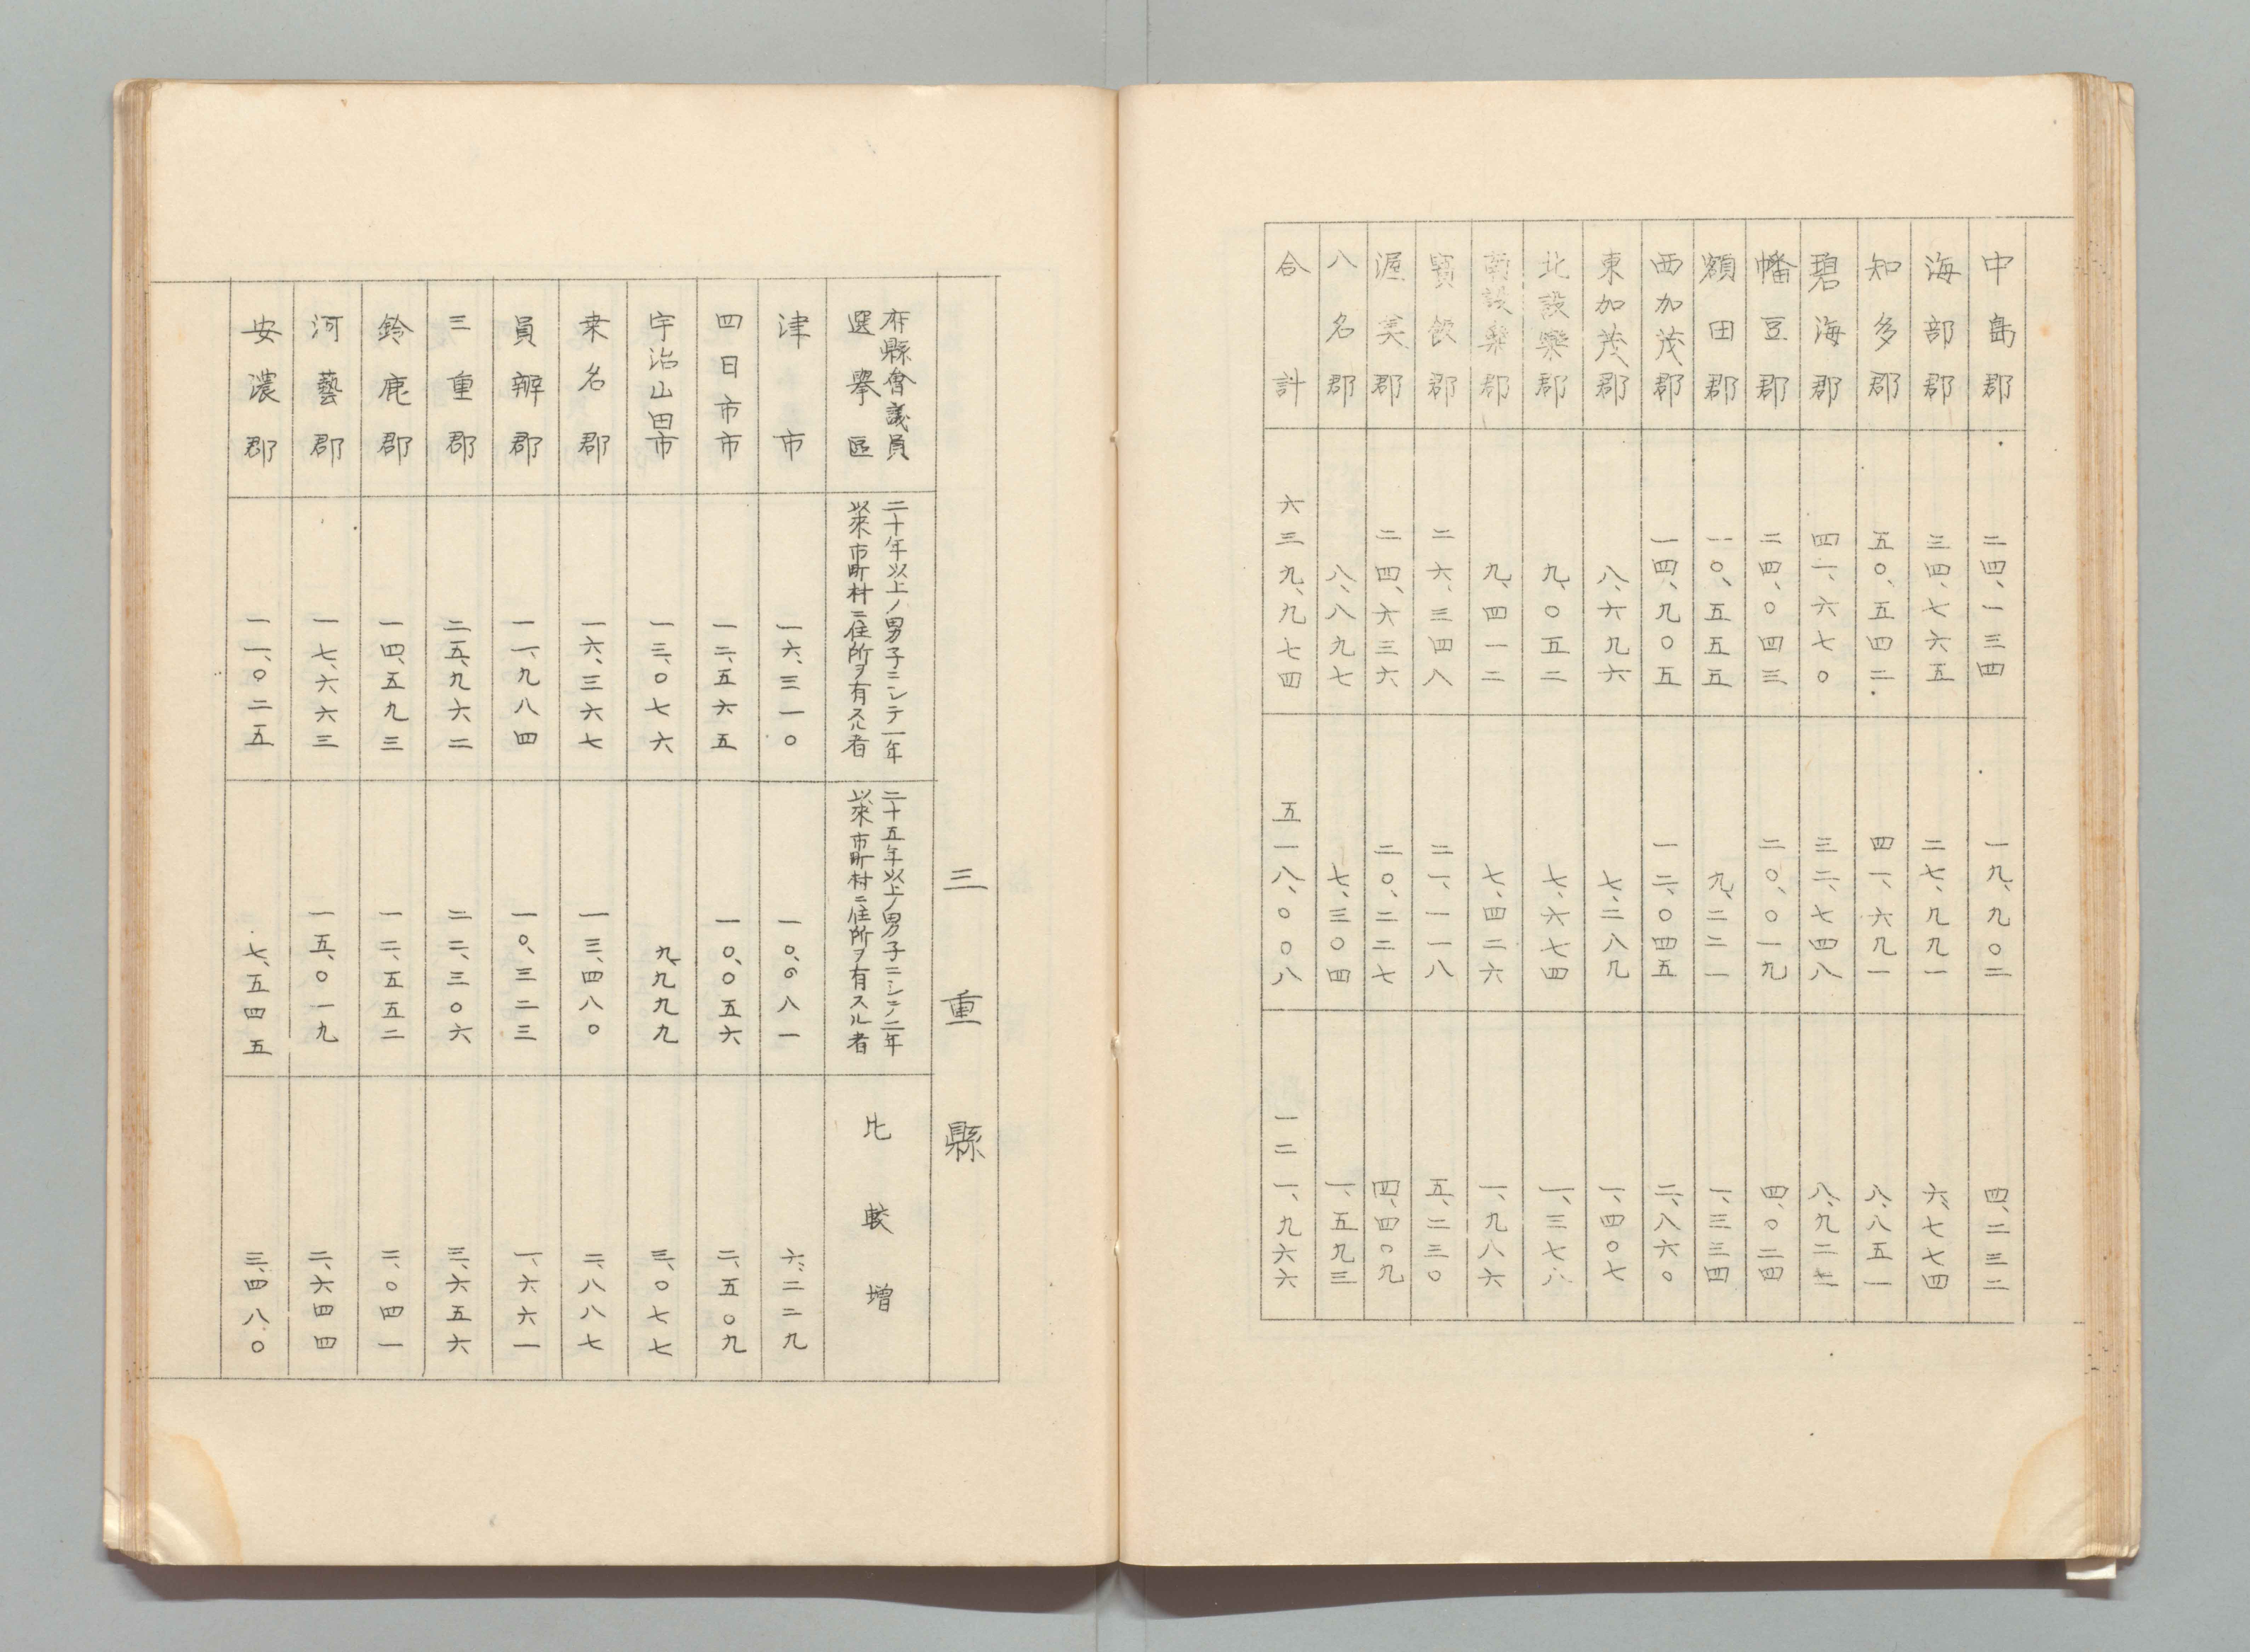 中島郡 二四、一三四 一九、九〇二 四、二三二
海部郡 三四、七六五 二七、九九一 六、七七四
知多郡 五〇、五四二 四一、六九一 八、八五一
碧海郡 四一、六七〇 三二、七四八 八、九二二
幡豆郡 二四、〇四三 二〇、〇一九 四、〇二四
額田郡 一〇、五五五 九、二二一 一、三三四
西加茂郡 一四、九〇五 一二、〇四五 二、八六〇
東加茂郡 八、六九六 七、二八九 一、四〇七
北設樂郡 九、〇五二 七、六七四 一、三七八
南設樂郡 九、四一二 七、四二六 一、九八六
寶飯郡 二六、三四八 二一、一一八 五、二三〇
渥美郡 二四、六三六 二〇、二二七 四、四〇九
八名郡 八、八九七 七、三〇四 一、五九三
合計 六三九、九七四 五一八、〇〇八 一二一、九六六
三重縣
府縣會議員
選擧區
二十年以上ノ男子ニシテ一年
以來市町村ニ住所ヲ有スル者
二十五年以上ノ男子ニシテ二年
以來市町村ニ住所ヲ有スル者
比較增
津市 一六、三一〇 一〇、〇八一 六、二二九
四日市市 一二、五六五 一〇、〇五六 二、五〇九
宇治山田市 一三、〇七六 九、九九九 三、〇七七
桑名郡 一六、三六七 一三、四八〇 二、八八七
員辨郡 一一、九八四 一〇、三二三 一、六六一
三重郡 二五、九六二 二二、三〇六 三、六五六
鈴鹿郡 一四、五九三 一二、五五二 二、〇四一
河藝郡 一七、六六三 一五、〇一九 二、六四四
安濃郡 一一、〇二五 七、五四五 三、四八〇